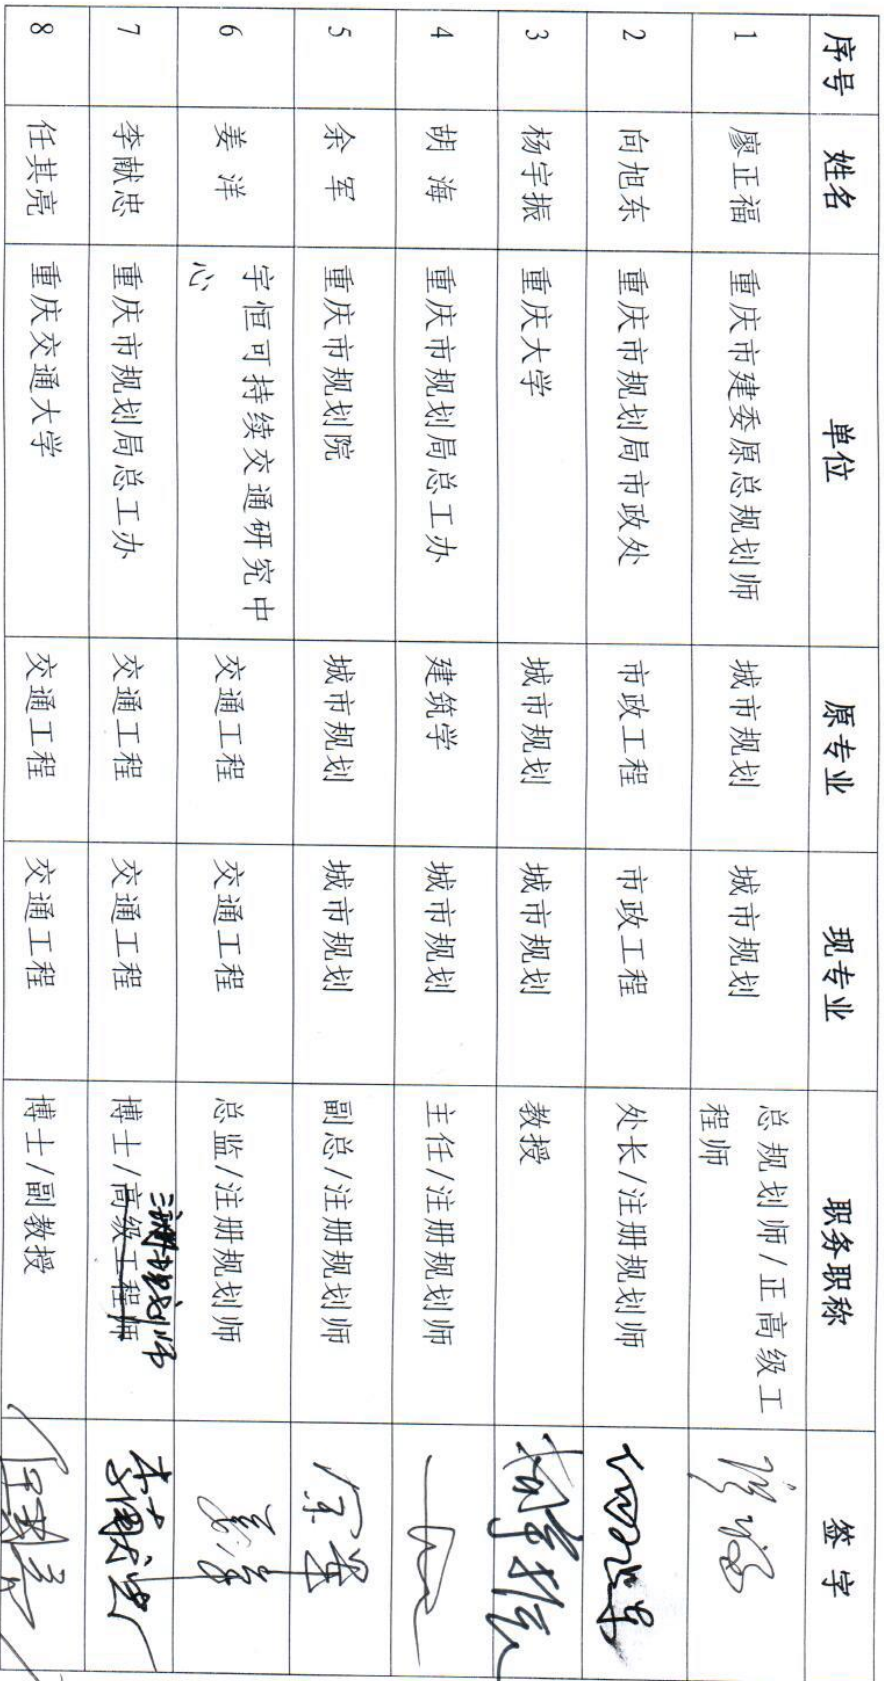 序号 姓名 单位 原专业 现专业 职务职称 签字
1 廖正福 重庆市建委原总规划师 城市规划 城市规划 总规划师/正高级工
程师
2 向旭东 重庆市规划局市政处 市政工程 市政工程 处长/注册规划师
3 杨宇振 重庆大学 城市规划 城市规划 教授 杨宇振
4 胡海 重庆市规划局总工办 建筑学 城市规划 主任/注册规划师
5 余军 重庆市规划院 城市规划 城市规划 副总/注册规划师 余军
6 姜洋 宇恒可持续交通研究中
心 交通工程 交通工程 总监/注册规划师 姜洋
7 李献忠 重庆市规划局总工办 交通工程 交通工程 博士/高级工程师 李献忠
8 任其亮 重庆交通大学 交通工程 交通工程 博士/副教授 任其亮